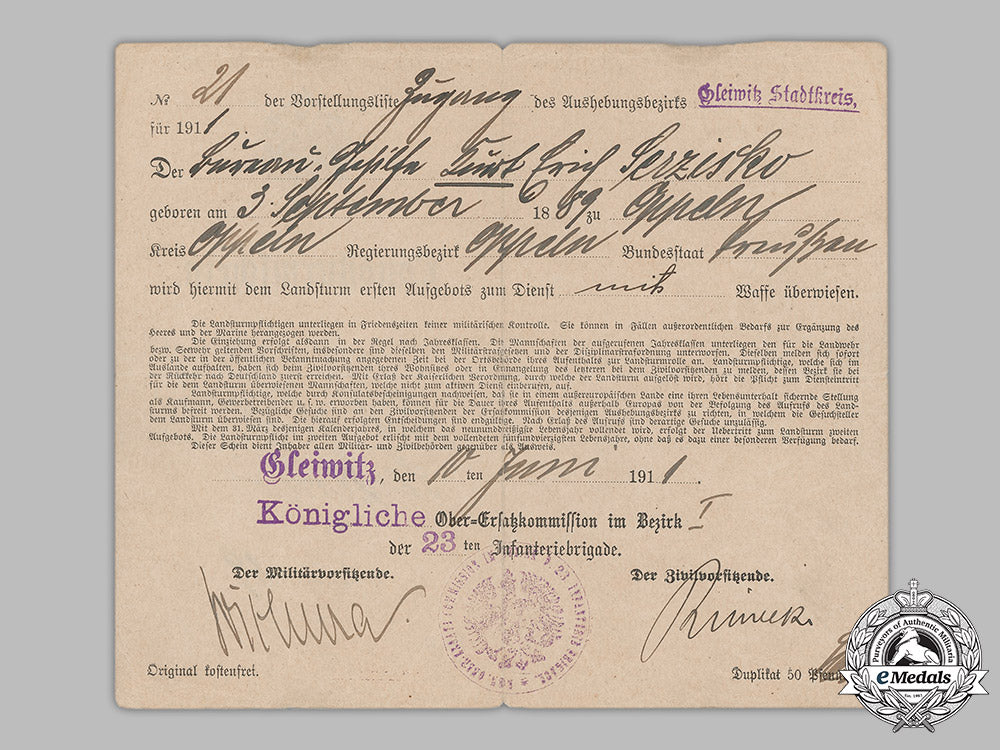 № 21 der Vorstellungsliste Zugang des Aushebungsbezirks Gleiwitz Stadtkreis,
für 1911.
Der Bureau-Gehilfe Kurt Erich Serzisko
geboren am 3. September 1889 zu Oppeln
Kreis Oppeln Regierungsbezirk Oppeln Bundesstaat Preußen
wird hiermit dem Landsturm ersten Aufgebots zum Dienst mit Waffe überwiesen.
Die Landsturmpflichtigen unterliegen in Friedenszeiten keiner militärischen Kontrolle. Sie können in Fällen außerordentlichen Bedarfs zur Ergänzung des
Heeres und der Marine herangezogen werden.
Die Einziehung erfolgt alsdann in der Regel nach Jahresklassen. Die Mannschaften der aufgerufenen Jahresklassen unterliegen den für die Landwehr
bezw. Seewehr geltenden Vorschriften, insbesondere sind dieselben den Militärstrafgesetzen und der Disziplinarstrafordnung unterworfen. Dieselben melden sich sofort
oder zu der in der öffentlichen Bekanntmachung angegebenen Zeit bei der Ortsbehörde ihres Aufenthalts zur Landsturmrolle an. Landsturmpflichtige, welche sich im
Auslande aufhalten, haben sich beim Zivilvorsitzenden ihres Wohnsitzes oder in Ermangelung des letzteren bei dem Zivilvorsitzenden zu melden, dessen Bezirk sie bei
der Rückkehr nach Deutschland zuerst erreichen. Mit Erlaß der Kaiserlichen Verordnung, durch welche der Landsturm aufgelöst wird, hört die Pflicht zum Diensteintritt
für die dem Landsturm überwiesenen Mannschaften, welche nicht zum aktiven Dienst einberufen, auf.
Landsturmpflichtige, welche durch Konsulatsbescheinigungen nachweisen, daß sie in einem außereuropäischen Lande eine ihren Lebensunterhalt sichernde Stellung
als Kaufmann, Gewerbetreibender u. s. w. erworben haben, können für die Dauer ihres Aufenthalts außerhalb Europas von der Befolgung des Aufrufs des Land-
sturms befreit werden. Bezügliche Gesuche sind an den Zivilvorsitzenden der Ersatzkommission desjenigen Aushebungsbezirks zu richten, in welchem die Gesuchsteller
dem Landsturm überwiesen sind. Die hierauf erfolgten Entscheidungen sind endgiltige. Nach Erlaß des Aufrufs sind derartige Gesuche unzulässig.
Mit dem 31. März desjenigen Kalenderjahres, in welchem das neununddreißigste Lebensjahr vollendet wird, erfolgt der Uebertritt zum Landsturm zweiten
Aufgebots. Die Landsturmpflicht im zweiten Aufgebot erlischt mit dem vollendeten fünfundvierzigsten Lebensjahre, ohne daß es dazu einer besonderen Verfügung bedarf.
Dieser Schein dient Inhaber allen Militär- und Zivilbehörden gegenüber als Ausweis.
Gleiwitz, den 10 ten Juni 1911.
Königliche Ober-Ersatzkommission im Bezirk I
der 23 ten Infanteriebrigade.
Der Militärvorsitzende. Der Zivilvorsitzende.
Original kostenfrei. Duplikat 50
Purveyors of Authentic Militaria
eMedals